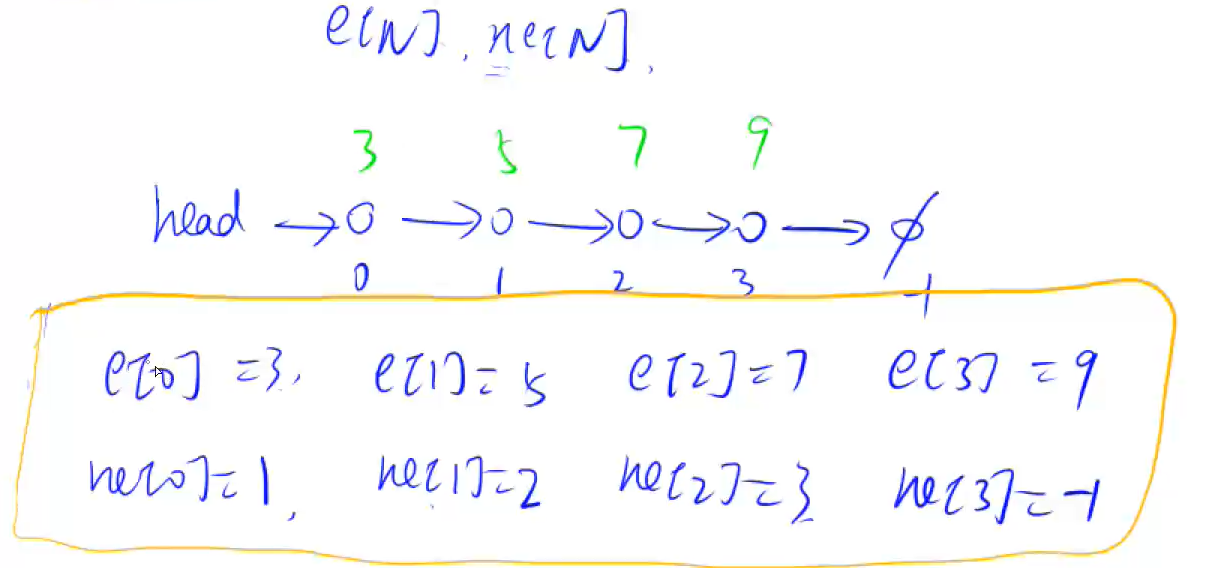 e[N], ne[N],
3 5 7 9
head → o → o → o → o → ∅
0 1 2 3 -1
e[0] =3, e[1]= 5 e[2]=7 e[3] =9
ne[0]=1, ne[1]=2 ne[2]=3 ne[3]=-1